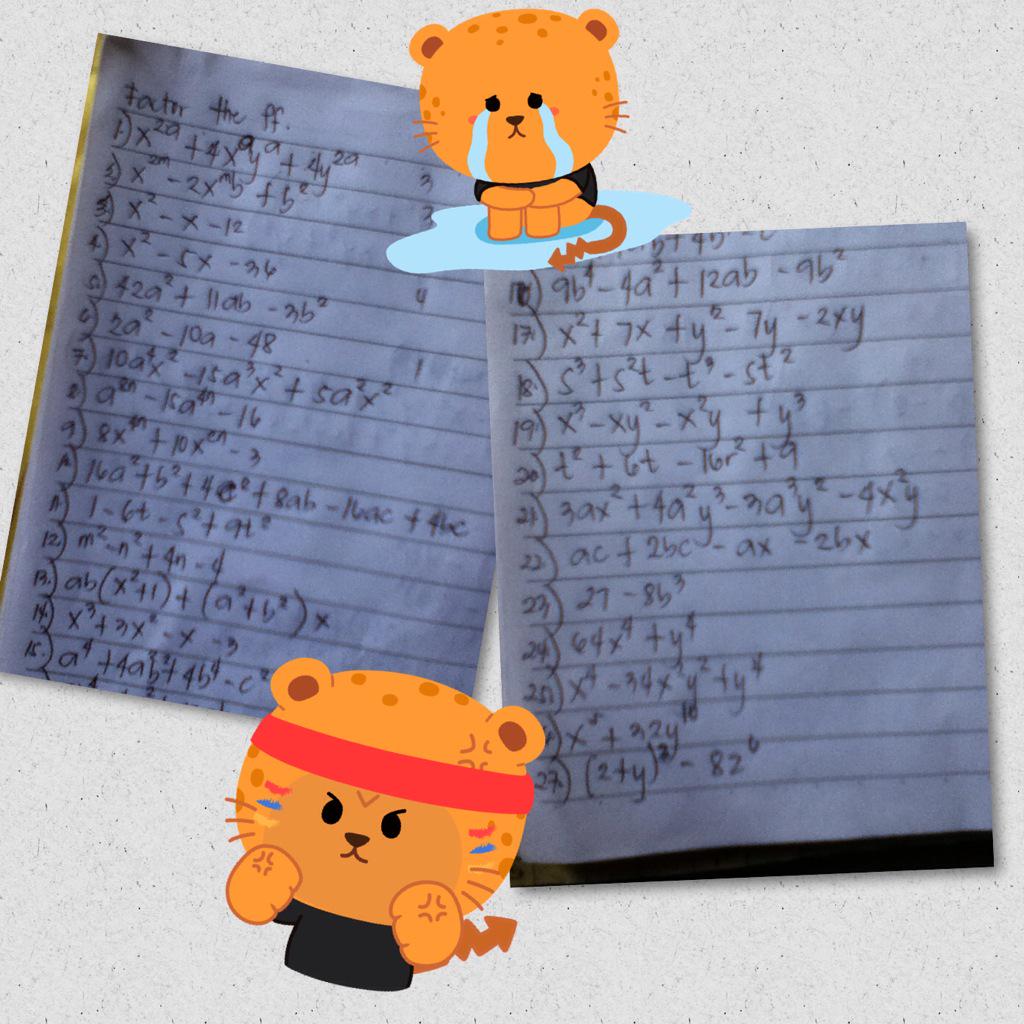 Factor the ff.
1.) x^2a + 4x^a y^a + 4y^2a
2) x^2m - 2x^m b + b^2
3) x² - x - 12
4) x² - 5x - 36
5) 42a² + 11ab - 3b²
6) 2a² - 10a - 48
7.) 10a⁴x² - 15a³x² + 5a²x²
8) a^8n - 15a^4n - 16
9) 8x^4n + 10x^2n - 3
10) 16a² + b² + 4c² + 8ab - 16ac + 4bc
11) 1 - 6t - s² + 9t²
12) m² - n² + 4n - 4
13.) ab(x²+1) + (a²+b²)x
14.) x³ + 3x² - x - 3
15.) a⁴ + 4a²b² + 4b⁴ - c²
3
3
4
1
16) 9b⁴ - 4a² + 12ab - 9b²
17.) x² + 7x + y² - 7y - 2xy
18.) s³ + s²t - t³ - st²
19.) x³ - xy² - x²y + y³
20.) t² + 6t - 16r² + 9
21.) 3ax² + 4a²y³ - 3a³y² - 4x²y
22.) ac + 2bc - ax - 2bx
23.) 27 - 8b³
24.) 64x⁴ + y⁴
25.) x⁴ - 34x²y² + y⁴
x⁵ + 32y¹⁰
27.) (2+y)³ - 8z⁶